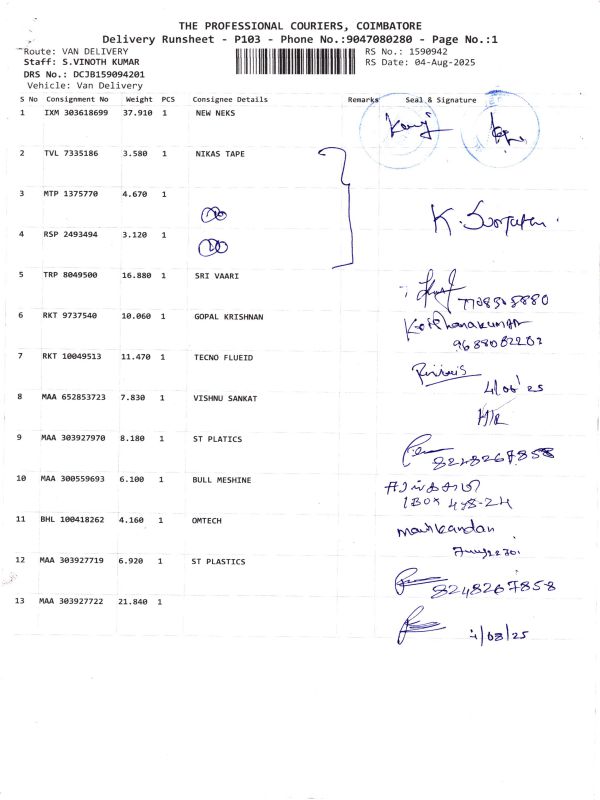 THE PROFESSIONAL COURIERS, COIMBATORE
Delivery Runsheet - P103 - Phone No.:9047080280 - Page No.:1
Route: VAN DELIVERY
RS No.: 1590942
Staff: S.VINOTH KUMAR
RS Date: 04-Aug-2025
DRS No.: DCJB159094201
Vehicle: Van Delivery
S No Consignment No Weight PCS Consignee Details Remarks Seal & Signature
1 IXM 303618699 37.910 1 NEW NEKS
2 TVL 7335186 3.580 1 NIKAS TAPE
3 MTP 1375770 4.670 1
4 RSP 2493494 3.120 1
5 TRP 8049500 16.880 1 SRI VAARI
6 RKT 9737540 10.060 1 GOPAL KRISHNAN
7 RKT 10049513 11.470 1 TECNO FLUEID
4/08/25
8 MAA 652853723 7.830 1 VISHNU SANKAT
9 MAA 303927970 8.180 1 ST PLATICS
8248267858
10 MAA 300559693 6.100 1 BULL MESHINE
11 BHL 100418262 4.160 1 OMTECH
Manikandan
12 MAA 303927719 6.920 1 ST PLASTICS
8248267858
13 MAA 303927722 21.840 1
4/08/25